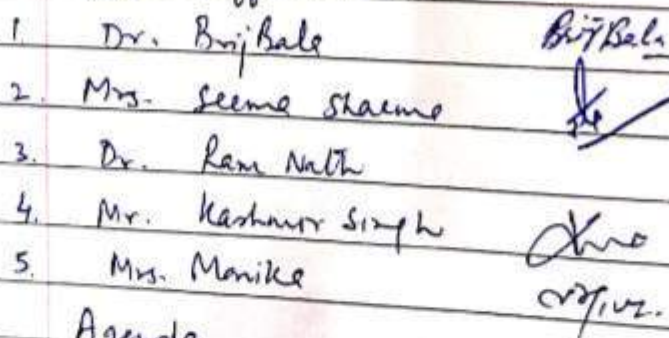 1. Dr. Brij Bala BrijBala
2. Mrs. Seema Sharma
3. Dr. Ram Nath
4. Mr. Kashmir Singh
5. Mrs. Monika
Agenda